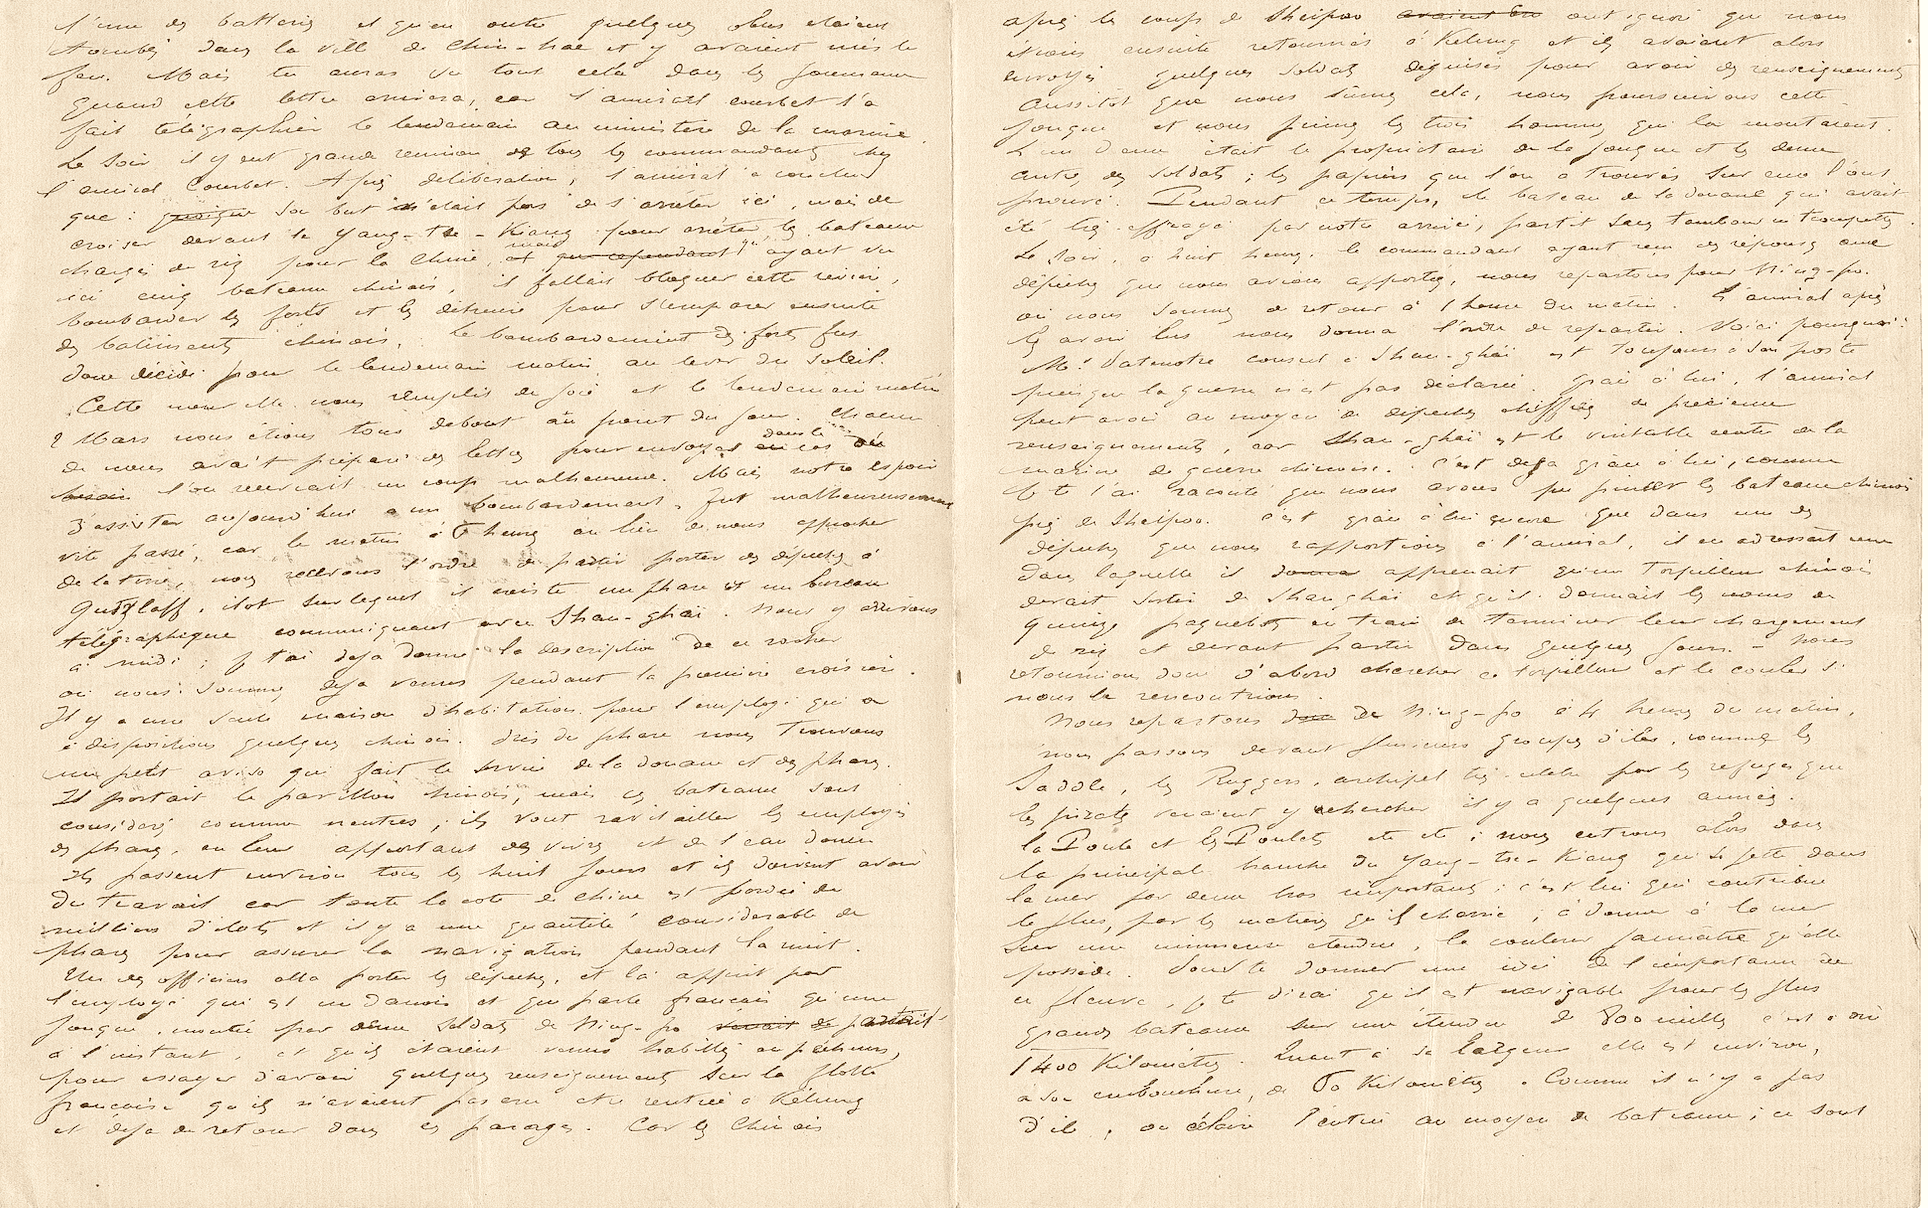 l'une des batteries et qu'en outre quelques obus étaient
tombés dans la ville de Chin-hae et y avaient mis le
feu. Mais tu auras vu tout cela dans les journaux
quand cette lettre arrivera, car l'amiral Courbet l'a
fait télégraphier le lendemain au ministère de la marine.
Le soir il y eut grande réunion de tous les commandants chez
l'amiral Courbet. Après délibération, l'amiral a conclu
que : quoique son but n'était pas de s'arrêter ici, mais de
croiser devant le Yang-tse-Kiang pour arrêter les bateaux
chargés de riz pour la Chine, mais qu'ayant vu
ici cinq bateaux chinois, il fallait bloquer cette rivière,
bombarder les forts et les détruire pour s'emparer ensuite
des batiments chinois. Le bombardement des forts fus
donc décidé pour le lendemain matin au lever du soleil.
Cette nouvelle nous remplit de joie et le lendemain matin
2 Mars nous étions tous debout au point du jour. Chacun
de nous avait préparé des lettres pour envoyer dans le cas où
l'on recevrait un coup malheureux. Mais notre espoir
d'assister aujourd'hui a un bombardement, fut malheureusement
vite passé, car le matin à heures au lieu de nous approcher
de la terre, nous recevons l'ordre de partir porter des dépêches à
Gutzlaff, ilot sur lequel il existe un phare et un bureau
télégraphique communiquant avec Shan-ghaï. Nous y arrivons
à midi ; je t'ai déja donné la description de ce rocher
où nous sommes déja venus pendant la première croisière.
Il y a une seule maison d'habitation pour l'employé qui a
à disposition quelques chinois. Près du phare nous trouvons
un petit aviso qui fait le service de la douane et des phares.
Il portait le pavillon chinois, mais ces bateaux sont
considérés comme neutres ; ils vont ravitailler les employés
des phares, en leur apportant des vivres et de l'eau douce
Ils passent environ tous les huit jours et ils doivent avoir
du travail car toute la cote de Chine est bordée de
milliers d'ilots et il y a une quantité considerable de
phares pour assurer la navigation pendant la nuit.
Un des officiers alla porter les dépêches, et là apprit par
l'employé qui est un danois et qui parle français qu'une
jonque, montée par deux soldats de Ning-po partait
à l'instant, et qu'ils étaient venus habillés en pêcheurs,
pour essayer d'avoir quelques renseignements sur la flotte
française qu'ils n'avaient pas cru être rentrée a Kélung
et déja de retour dans ces parages. Car les Chinois
après les coups de Sheïpoo ont ignoré que nous
étions ensuite retournés à Kélung et ils avaient alors
envoyés quelques soldats déguisés pour avoir des renseignements
Aussitot que nous sûmes cela, nous poursuivons cette
jonque et nous primes les trois hommes qui la montaient.
L'un d'eux était le propriétaire de la jonque et les deux
autres, des soldats ; les papiers que l'on a trouvés sur eux l'ont
prouvé. Pendant ce temps, le bateau de la douane qui avait
été très effrayé par notre arrivée, partit sans tambour ni trompette.
Le soir, a huit heures, le commandant ayant reçu des réponses aux
dépêches que nous avions apportées, nous repartons pour Ning-po.
où nous sommes de retour à 1 heure du matin. L'amiral après
les avoir lus nous donna l'ordre de repartir. Voici pourquoi :
Mr. Patenotre consul à Shan-ghaï est toujours à son poste
puisque la guerre n'est pas déclarée. Grâce à lui, l'amiral
peut avoir au moyen de dépêches chiffrées de précieux
renseignements, car Shan-ghaï est le véritable centre de la
marine de guerre chinoise. C'est déja grâce à lui, comme
je te l'ai raconté que nous avons pu les bateaux chinois
près de Sheïpoo. C'est grâce à lui encore que dans une des
dépêches que nous rapportions à l'amiral, il en adressait une
dans laquelle il apprenait qu'un torpilleur chinois
devait sortir de Shanghaï et qu'il donnait les noms de
quinze paquebots en train de terminer leur chargement
de riz et devant partir dans quelques jours. - Nous
retournions donc d'abord chercher ce torpilleur et le couler si
nous le rencontrions.
Nous repartons de Ning-po à 4 heures du matin,
nous passons devant plusieurs groupes d'iles, comme les
Saddle, les Ruggers, archipel très célèbre par les refuges que
les pirates venaient y chercher il y a quelques années.
la Poule et les Poulets etc etc ; nous entrons alors dans
la principal branche du Yang-tse-Kiang qui se jette dans
la mer par deux bras importants ; c'est lui qui contribue
le plus, par les matières qu'il charrie, à donner à la mer
sur une immense étendue, la couleur jaunâtre qu'elle
possède. Pour te donner une idée de l'importance de
ce fleuve, je te dirai qu'il est navigable pour les plus
grands bateaux sur une étendue de 800 milles c'est à dire
1400 Kilomètres. Quant à sa largeur elle est environ,
a son embouchure, de Kilomètres. Comme il n'y a pas
d'ile, on éclaire l'entrée au moyen de bateaux ; ce sont